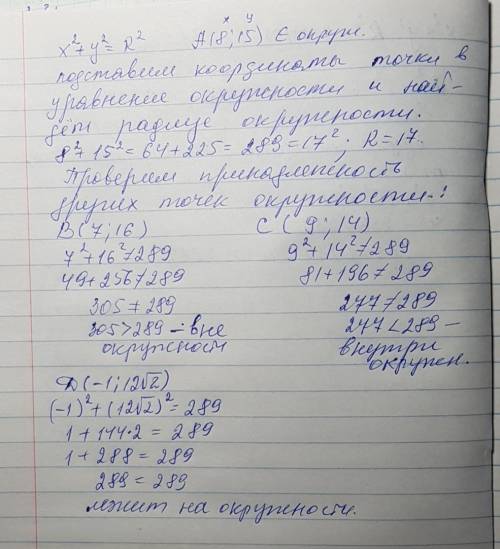 x y
x² + y² = R² A(8; 15) ∈ окружн.
подставим координаты точки в
уравнение окружности и най-
дём радиус окружности.
8² + 15² = 64 + 225 = 289 = 17²; R = 17.
Проверим принадлежность
других точек окружности:
B(7; 16) C(9; 14)
7² + 16² ≠ 289 9² + 14² ≠ 289
49 + 256 ≠ 289 81 + 196 ≠ 289
305 ≠ 289 277 ≠ 289
305 > 289 – вне 247 < 289 –
окружност внутри
окружн.
D(-1; 12√2)
(-1)² + (12√2)² = 289
1 + 144·2 = 289
1 + 288 = 289
289 = 289
лежит на окружности.